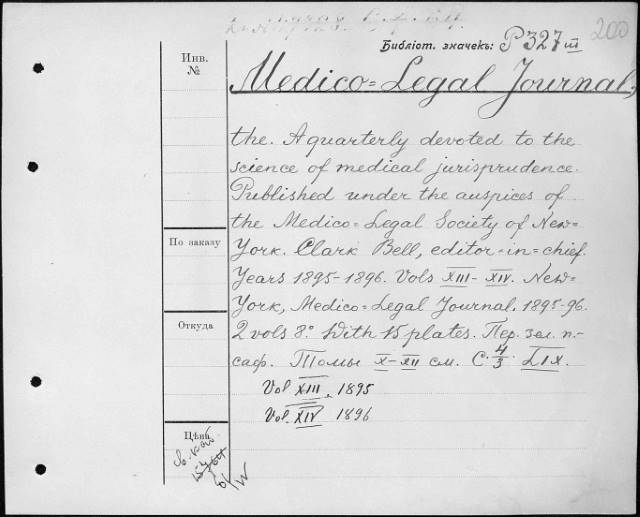 200
Библіот. значекъ: P 327 III
Инв.
№
Medico=Legal Journal,
the. A quarterly devoted to the
science of medical jurisprudence.
Published under the auspices of
the Medico=Legal Society of New=
York. Clark Bell, editor=in=chief.
Years 1895-1896. Vols XIII-XIV. New=
York, Medico=Legal Journal. 1895-96.
2 vols 8°. With 15 plates. Пер. зел. п.-
саф. Томы X-XII см. С. 4/3. LIX.
Vol XIII, 1895
Vol. XIV 1896
По заказу
Откуда
Цѣна